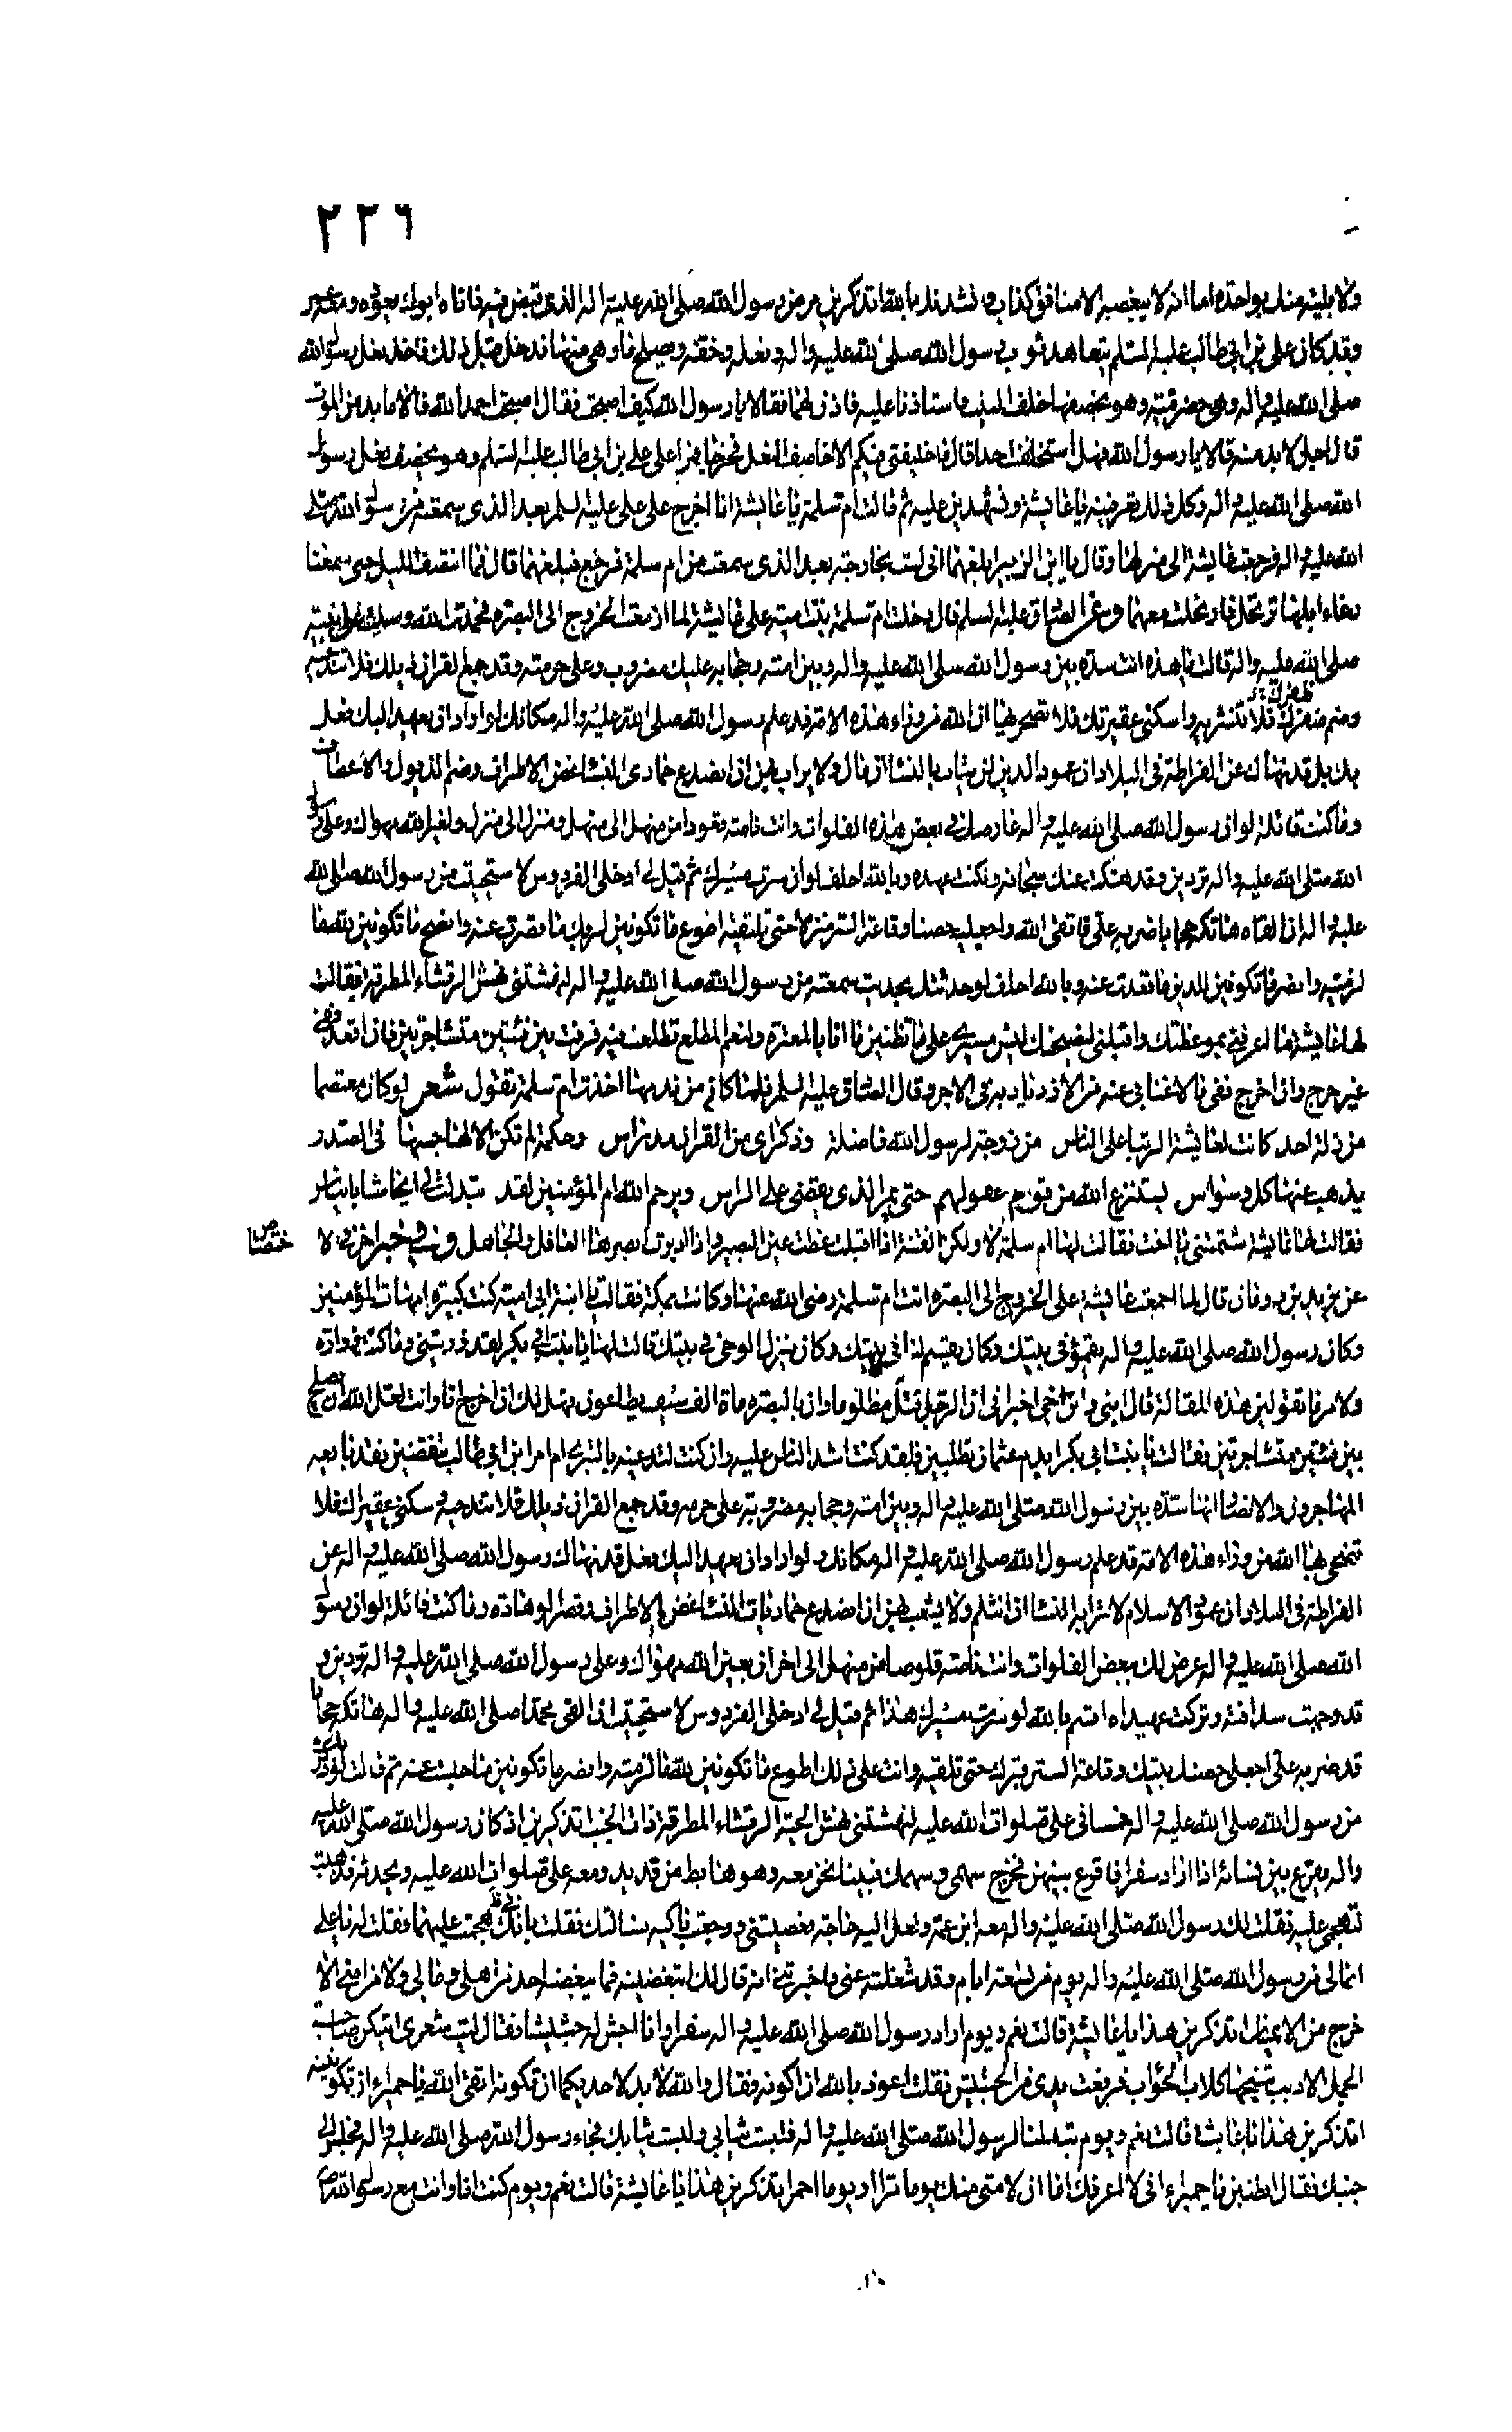 ٢٢٦
ولابليته منك بواحدة اما انه لا يبغضه الا منافق كذاب وانشدك بالله اتذكرين مرض رسول الله صلى الله عليه واله الذى قبض فيه فاتاه ابوك يعوده ومعه عمر
وقد كان على بن ابى طالب عليه السلم يتعاهد ثوب رسول الله صلى الله عليه واله ونعله وخفه ويصلح ما وهى منها فدخل قبل ذلك فاخذ نعل رسول الله
صلى الله عليه واله وهى حضرمية وهو يخصفها خلف البيت فاستاذنا عليه فاذن لهما فقالا يا رسول الله كيف اصبحت فقال اصبحت احمد الله قالا ما بد من الموت
قال اجل لا بد منه قالا يا رسول الله فهل استخلفت احدا قال ما خليفتى فيكم الا خاصف النعل فخرجا فمرا على على بن ابى طالب عليه السلم وهو يخصف نعل رسول
الله صلى الله عليه واله وكل ذلك تعرفينه يا عايشة وتشهدين عليه ثم قالت ام سلمة يا عايشة انا اخرج على على عليه السلم بعد الذى سمعته من رسول الله صلى
الله عليه واله فرجعت عايشة الى منزلها وقال يا ابن الزبير ابلغهما انى لست بخارجة بعد الذى سمعته من ام سلمة فرجع فبلغهما قال فما انتصف الليل حتى سمعنا
رغاء ابلها ترتحل فارتحلت معهما وعن الصادق عليه السلم قال دخلت ام سلمة بنت امية على عايشة لما ازمعت الخروج الى البصرة فحمدت الله وصلت على نبيه
صلى الله عليه واله قالت يا هذه انت سدة بين رسول الله صلى الله عليه واله وبين امته وحجابه عليك مضروب وعلى حرمته وقد جمع القران ذيلك فلا تندحيه
وضم ضفرك فلا تنشريه واسكنى عقيرتك فلا تصحريها ان الله من وراء هذه الامة قد علم رسول الله صلى الله عليه واله مكانك لو اراد ان يعهد اليك فعل
بك بل قد نهاك عن الفراطة فى البلاد ان عمود الدين لن يثاب بالنساء ان مال ولا يراب بهن ان صدع حمادى النساء غض الاطراف وضم الذيول والاعطاف
وما كنت قائلة لو ان رسول الله صلى الله عليه واله عارضك فى بعض هذه الفلوات وانت ناصة قعودا من منهل الى منهل ومنزل الى منزل ولغير الله مهواك وعلى رسول
الله صلى الله عليه واله تردين وقد هتكت عنك سجافه ونكثت عهده وبالله احلف لو ان سرت مسيرك ثم قيل لى ادخلى الفردوس لاستحييت من رسول الله صلى الله
عليه واله ان القاه هاتكة حجابا ضربه على فاتقى الله واجعليه حصنا وقاعة الستر منزلا حتى تلقيه اطوع ما تكونين لربك ما قصرت عنه وانصح ما تكونين لله ما
لزمتيه وانصر ما تكونين للدين ما قعدت عنه وبالله احلف لو حدثتك بحديث سمعته من رسول الله صلى الله عليه واله لنهشتنى نهش الرقشاء المطرقة فقالت
لها عايشة ما اعرفنى بموعظتك واقبلنى لنصيحتك ليس مسيرى على ما تظنين ما انا بالمغترة ولنعم المطلع تطلعت فيه فرقت بين فئتين متشاجرتين فان اقعد ففى
غير حرج وان اخرج ففى ما لا غنا بى عنه من الازدياد به فى الاجر وقال الصادق عليه السلم فلما كان من ندمها اخذت ام سلمة تقول شعر لو كان معتصما
من زلة احد كانت لعايشة الرتبا على الناس من زوجة لرسول الله فاضلة وذكر اى من القران مدراس وحكمة لم تكن الا لهاجسها فى الصدر
يذهب عنها كل وسواس يستنزع الله من قوم عقولهم حتى يمر الذى يقضى على الراس ويرحم الله ام المؤمنين لقد تبدلت لى ايحاشا بايناس
فقالت لها عايشة شتمتنى يا اخت فقالت لها ام سلمة لا ولكن الفتنة اذا اقبلت غطت عين البصير واذا ادبرت ابصرها العاقل والجاهل وفى خبر اخر فى لا ختصاص
عن يزيد بن رومان قال لما اجمعت عايشة على الخروج الى البصرة اتت ام سلمة رضى الله عنها وكانت بمكة فقالت يا ابنة ابى امية كنت كبيرة امهات المؤمنين
وكان رسول الله صلى الله عليه واله يقمؤ فى بيتك وكان يقسم لنا فى بيتك وكان ينزل الوحى فى بيتك قالت لها يا بنت ابى بكر لقد زرتنى وما كنت زوارة
ولامر ما تقولين هذه المقالة قالت ان ابنى وابن اخى اخبرانى ان الرجل قتل مظلوما وان بالبصرة ماة الف سيف يطاعون فهل لك ان اخرج انا وانت لعل الله ان يصلح
بين فئتين متشاجرتين فقالت يا بنت ابى بكر ابدم عثمان تطلبين فلقد كنت اشد الناس عليه وان كنت لتدعينه بالتبرى ام امر ابن ابى طالب تنقضين فقد بايعه
المهاجرون والانصار انها سدة بين رسول الله صلى الله عليه واله وبين امته وحجابه مضروبة على حرمه وقد جمع القران ذيلك فلا تندحيه وسكنى عقيراك فلا
تضحى بها الله من وراء هذه الامة قد علم رسول الله صلى الله عليه واله مكانك ولو اراد ان يعهد اليك فعل قد نهاك رسول الله صلى الله عليه واله عن
الفراطة فى البلاد ان عمود الاسلام لا ترابه النساء ان انثلم ولا يشعب بهن ان انصدع حماديات النساء غض الاطراف وقصر الوهاذة وما كنت قائلة لو ان رسول
الله صلى الله عليه واله عرض لك ببعض الفلوات وانت ناصة قلوصا من منهل الى اخر ان بعين الله مهواك وعلى رسول الله صلى الله عليه واله تردين و
قد وجهت سدافته وتركت عهيداه اقسم بالله لو سرت مسيرك هذا ثم قيل لى ادخلى الفردوس لاستحييت ان القى محمدا صلى الله عليه واله هاتكة حجابا
قد ضربه على اجعلى حصنك بيتك وقاعة الستر قبرك حتى تلقيه وانت على ذلك اطوع ما تكونين لله ما لزمته وانصر ما تكونين ما جلست عنه ثم قالت لو ذكرتك
من رسول الله صلى الله عليه واله خمسا فى على صلوات الله عليه لنهشتنى نهش الحية الرقشاء المطرقة ذات الخبب اتذكرين اذ كان رسول الله صلى الله عليه
واله يقرع بين نسائه اذا اراد سفرا فاقرع بينهن فخرج سهمى وسهمك فبينا نحن معه وهو هابط من قديد ومعه على صلوات الله عليه ويحدثه فذهبت
لتهجمى عليه فقلت لك رسول الله صلى الله عليه واله معه ابن عمه ولعل اليه حاجة فعصيتنى ورجعت باكية فسالتك فقلت بانك هجمت عليهما فقلت له يا على
انما لى من رسول الله صلى الله عليه واله يوم من تسعة ايام وقد شغلته عنى فاخبرتنى انه قال لك اتبغضينه فما يبغضه احد من اهلى ولا من امتى الا
خرج من الايمان اتذكرين هذا يا عايشة قالت نعم ويوم اراد رسول الله صلى الله عليه واله سفرا وانا اجش له جشيشا فقال ليت شعرى ايتكن صاحبة
الجمل الادبب تنبحها كلاب الحوأب فرفعت يدى من الجشيش فقلت اعوذ بالله ان اكونه فقال والله لا بد لاحديكما ان تكونه اتقى الله يا حميراء ان تكونينه
اتذكرين هذا يا عايشة قالت نعم ويوم تبذلنا لرسول الله صلى الله عليه واله فلبست ثيابى ولبست ثيابك فجاء رسول الله صلى الله عليه واله فجلس الى
جنبك فقال اتظنين يا حميراء انى لا اعرفك اما ان لامتى منك يوما مرا او يوما احمر اتذكرين هذا يا عايشة قالت نعم ويوم كنت انا وانت مع رسول الله ص